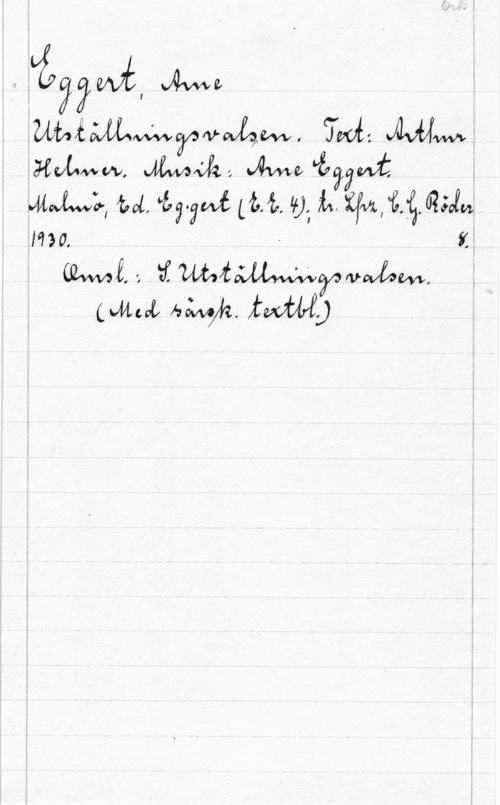 Ork
Eggert, Arne
Utställningsvalsen. Text: Arthur
Helmer. Musik: Arne Eggert.
Malmö, Ed. Eggert (E. E. 4); tr. Lpz, C. G. Röder
1930. 8.
Omsl.: S. Utställningsvalsen.
(Med särsk. textbl.)